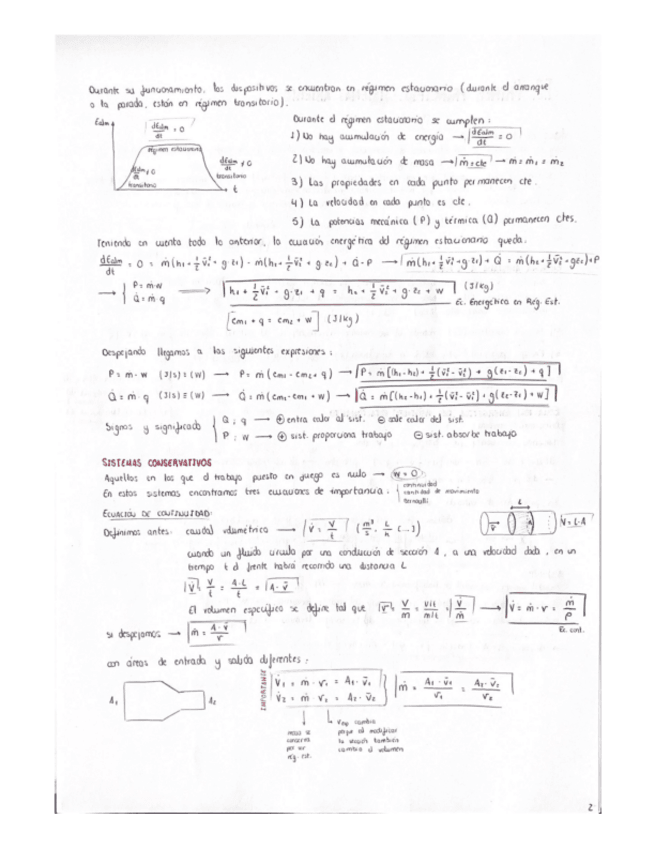 Durante su funcionamiento, los dispositivos se encuentran en régimen estacionario (durante el arranque
o la parada, están en régimen transitorio).
Ealm
dEalm/dt = 0
régimen estacionario
dEalm/dt ≠ 0
transitorio
dEalm/dt ≠ 0
transitorio
t
Durante el régimen estacionario se cumplen:
1) No hay acumulación de energía → dEalm/dt = 0
2) No hay acumulación de masa → ṁ = cte → ṁ = ṁ₁ = ṁ₂
3) Las propiedades en cada punto permanecen cte.
4) La velocidad en cada punto es cte.
5) La potencias mecánica (P) y térmica (Q) permanecen ctes.
Teniendo en cuenta todo lo anterior, la ecuación energética del régimen estacionario queda:
P = ṁ·w
Q̇ = ṁ·q
(J/kg)
Ec. Energética en Rég. Est.
[em₁ + q = em₂ + w] (J/kg)
Despejando llegamos a las siguientes expresiones:
P = ṁ · w (J/s) ≡ (W) → P = ṁ (em₁ - em₂ + q) → P = ṁ[(h₁-h₂) + ½(v̄₁² - v̄₂²) + g(z₁-z₂) + q]
Q̇ = ṁ · q (J/s) ≡ (W)
Signos y significado
Q̇ ; q → ⊕ entra calor al sist. ⊖ sale calor del sist.
P ; w → ⊕ sist. proporciona trabajo ⊖ sist. absorbe trabajo
SISTEMAS CONSERVATIVOS
Aquellos en los que el trabajo puesto en juego es nulo → w = 0
En estos sistemas encontramos tres ecuaciones de importancia:
continuidad
cantidad de movimiento
Bernoulli
ECUACIÓN DE CONTINUIDAD:
Definimos antes: caudal volumétrico → V̇ = V/t (m³/s, L/h (...))
L
V = L·A
cuando un fluido circula por una conducción de sección A, a una velocidad dada, en un
tiempo t el frente habrá recorrido una distancia L
V̇ = V/t = A·L/t = A·v̄
El volumen específico se define tal que v = V/m = V/t / m/t = V̇/ṁ → V̇ = ṁ · v = ṁ/ρ
Ec. cont.
si despejamos → ṁ = A·v̄/v
con áreas de entrada y salida diferentes:
A₁
A₂
IMPORTANTE
V̇₁ = ṁ · v₁ = A₁ · v̄₁
V̇₂ = ṁ · v₂ = A₂ · v̄₂
ṁ = A₁·v̄₁/v₁ = A₂·v̄₂/v₂
masa se
conserva
por ser
rég. est.
cambia
modificar
la sección también
cambia el volumen
2